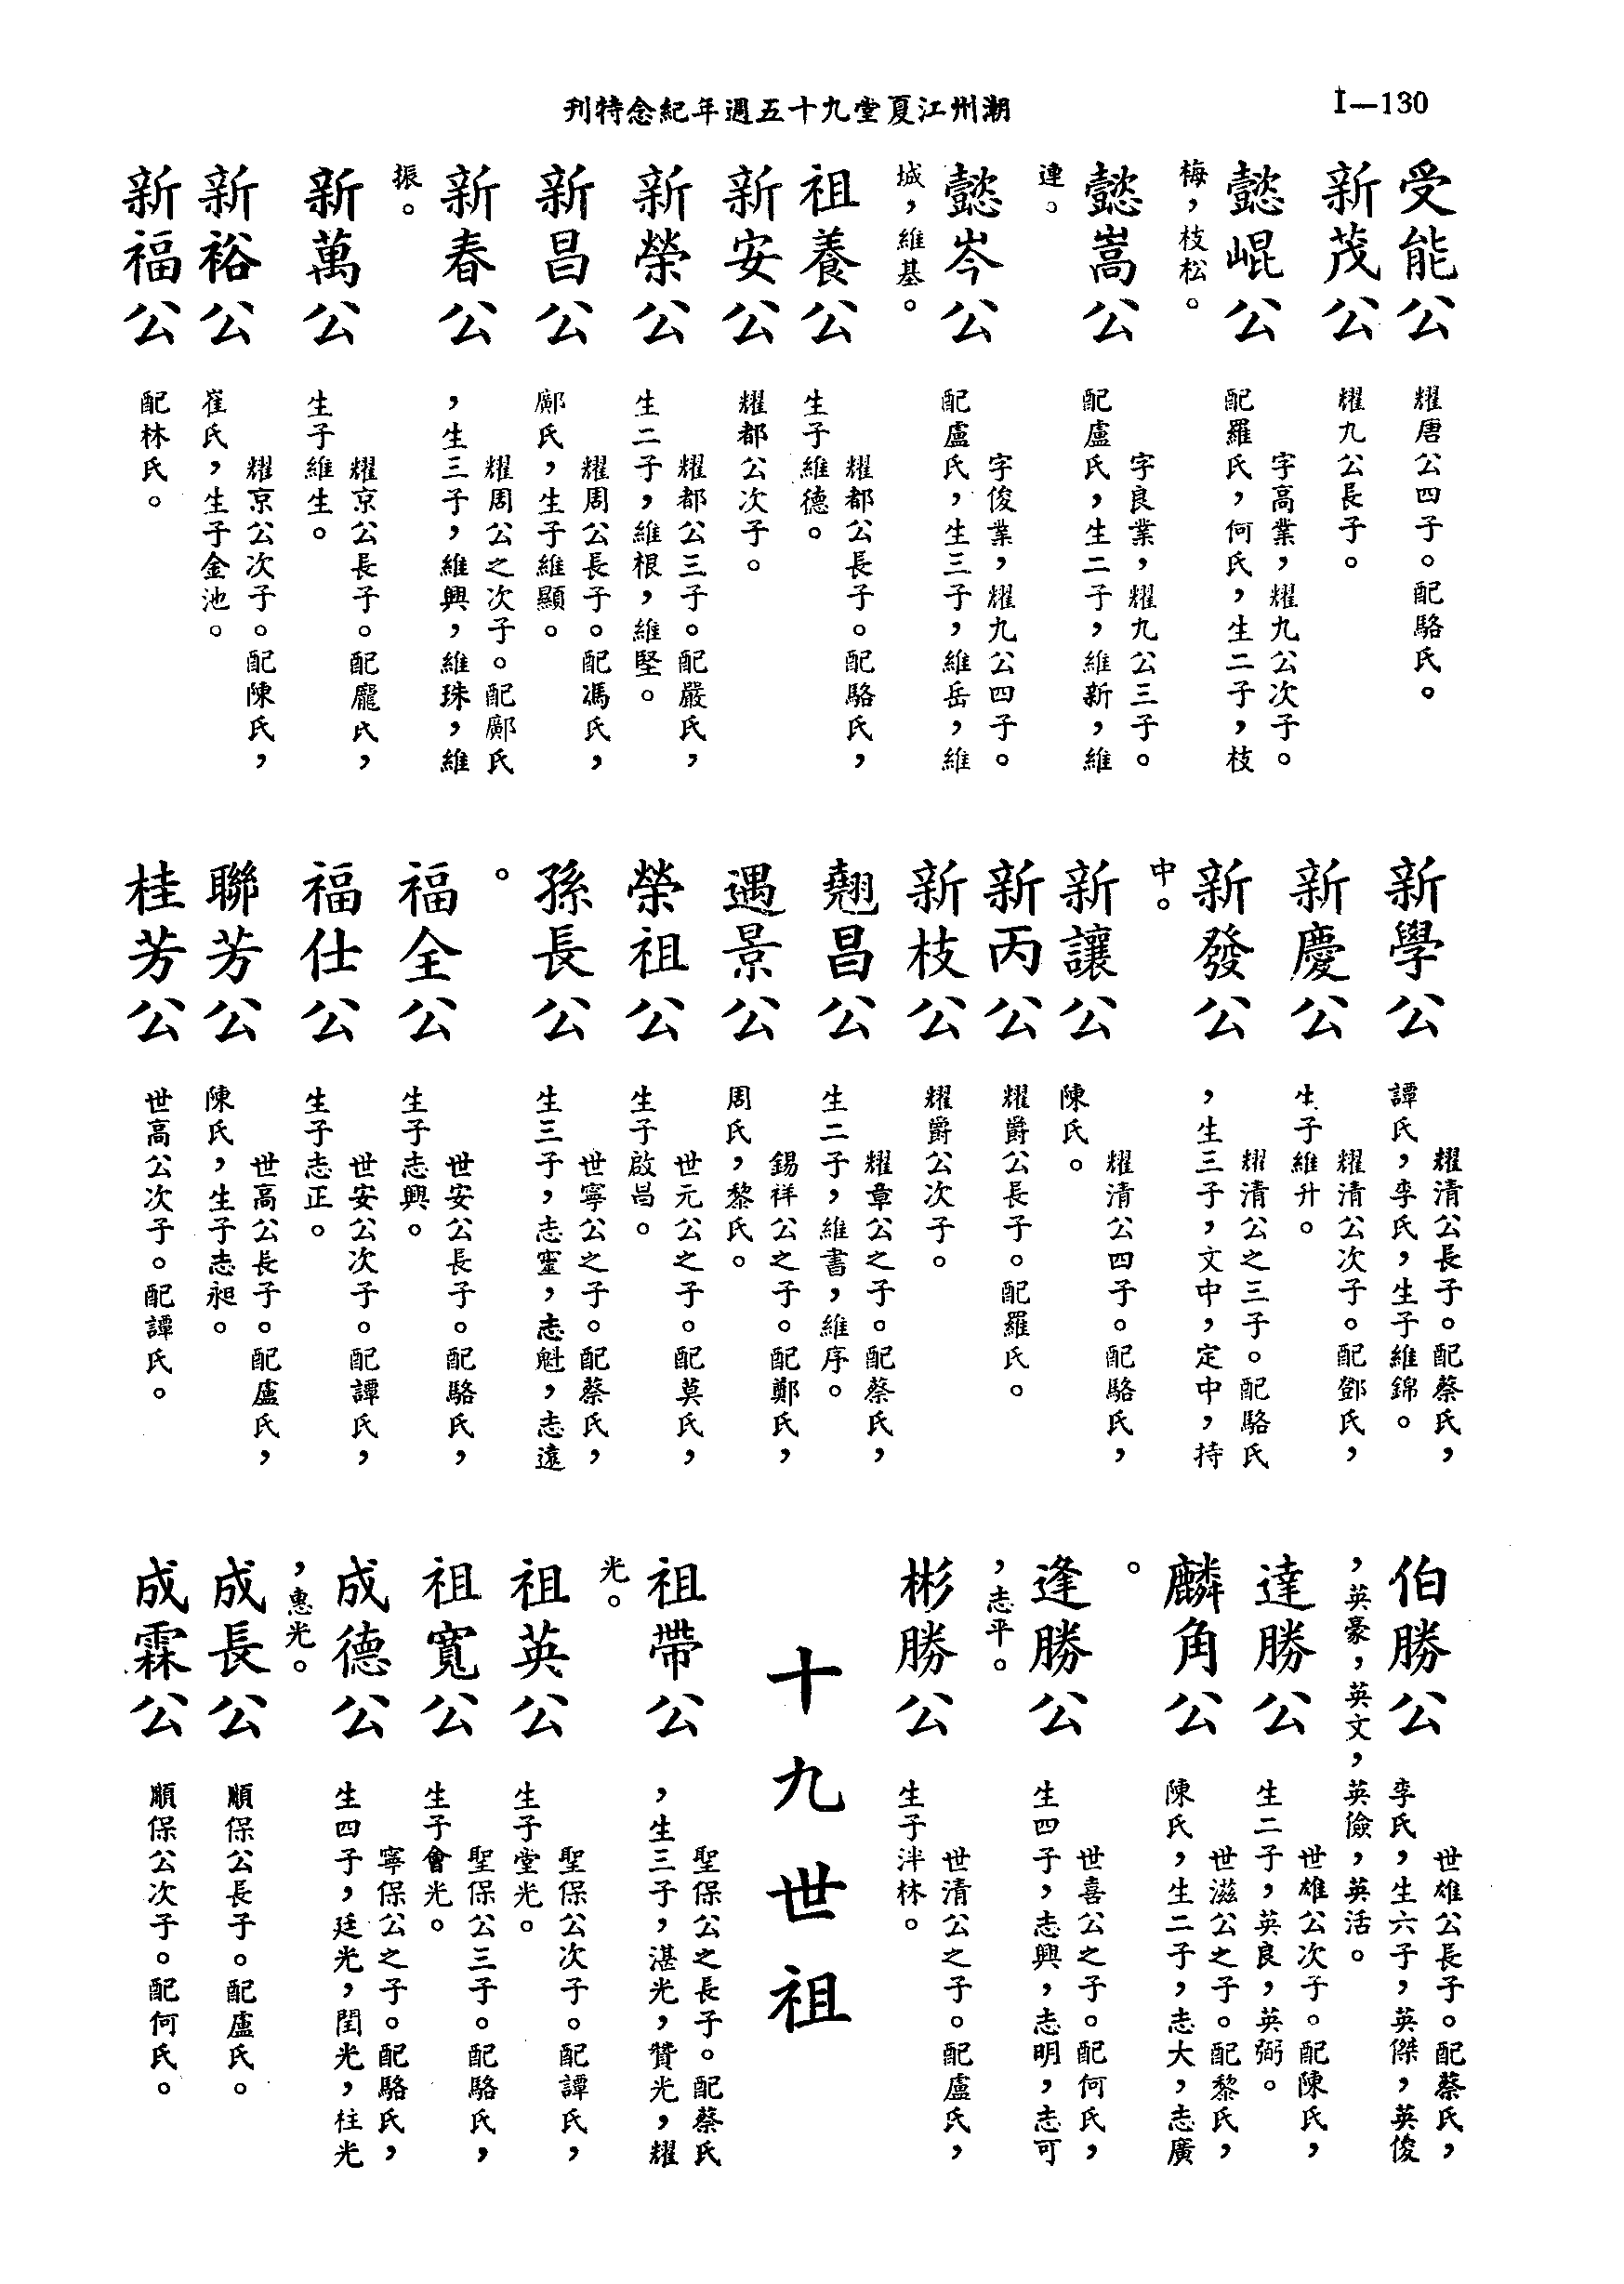 潮州江夏堂九十五週年紀念特刊
I—130
受能公 耀唐公四子。配駱氏。
新茂公 耀九公長子。
懿崐公 字高業，耀九公次子。
配羅氏，何氏，生二子，枝
梅，枝松。
懿嵩公 字良業，耀九公三子。
配盧氏，生二子，維新，維
連。
懿岑公 字俊業，耀九公四子。
配盧氏，生三子，維岳，維
城，維基。
祖養公 耀都公長子。配駱氏，
生子維德。
新安公 耀都公次子。
新榮公 耀都公三子。配嚴氏，
生二子，維根，維堅。
新昌公 耀周公長子。配馮氏，
鄺氏，生子維顯。
新春公 耀周公之次子。配鄺氏
，生三子，維興，維珠，維
振。
新萬公 耀京公長子。配龐氏，
生子維生。
新裕公 耀京公次子。配陳氏，
崔氏，生子金池。
新福公 配林氏。
新學公 耀清公長子。配蔡氏，
譚氏，李氏，生子維錦。
新慶公 耀清公次子。配鄧氏，
生子維升。
新發公 耀清公之三子。配駱氏
，生三子，文中，定中，持
中。
新讓公 耀清公四子。配駱氏，
陳氏。
新丙公 耀爵公長子。配羅氏。
新枝公 耀爵公次子。
翹昌公 耀章公之子。配蔡氏，
生二子，維書，維序。
遇景公 錫祥公之子。配鄭氏，
周氏，黎氏。
榮祖公 世元公之子。配莫氏，
生子啟昌。
孫長公 世寧公之子。配蔡氏，
生三子，志寷，志魁，志遠
。
福全公 世安公長子。配駱氏，
生子志興。
福仕公 世安公次子。配譚氏，
生子志正。
聯芳公 世高公長子。配盧氏，
陳氏，生子志昶。
桂芳公 世高公次子。配譚氏。
伯勝公 世雄公長子。配蔡氏，
李氏，生六子，英傑，英俊
，英豪，英文，英儉，英活。
達勝公 世雄公次子。配陳氏，
生二子，英良，英弼。
麟角公 世滋公之子。配黎氏，
陳氏，生二子，志大，志廣
。
逢勝公 世喜公之子。配何氏，
生四子，志興，志明，志可
，志平。
彬勝公 世清公之子。配盧氏，
生子泮林。
十九世祖
祖帶公 聖保公之長子。配蔡氏
，生三子，湛光，贊光，耀
光。
祖英公 聖保公次子。配譚氏，
生子堂光。
祖寬公 聖保公三子。配駱氏，
生子會光。
成德公 寧保公之子。配駱氏，
生四子，廷光，閏光，柱光
，惠光。
成長公 順保公長子。配盧氏。
成霖公 順保公次子。配何氏。